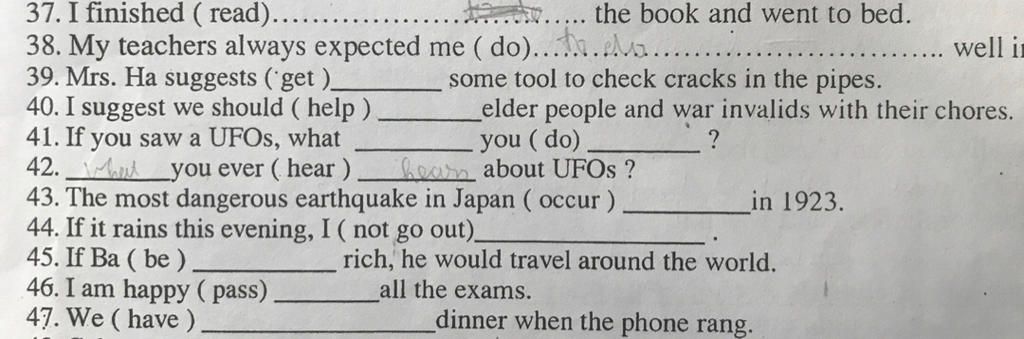 37. I finished ( read)...................................... the book and went to bed.
38. My teachers always expected me ( do)...to do.................................... well
39. Mrs. Ha suggests ( get )_________ some tool to check cracks in the pipes.
40. I suggest we should ( help ) ________elder people and war invalids with their chores.
41. If you saw a UFOs, what _________ you ( do) _________ ?
42. ________you ever ( hear ) hear about UFOs ?
43. The most dangerous earthquake in Japan ( occur ) __________in 1923.
44. If it rains this evening, I ( not go out)__________________ .
45. If Ba ( be ) ___________ rich, he would travel around the world.
46. I am happy ( pass) ________all the exams.
47. We ( have ) __________________dinner when the phone rang.